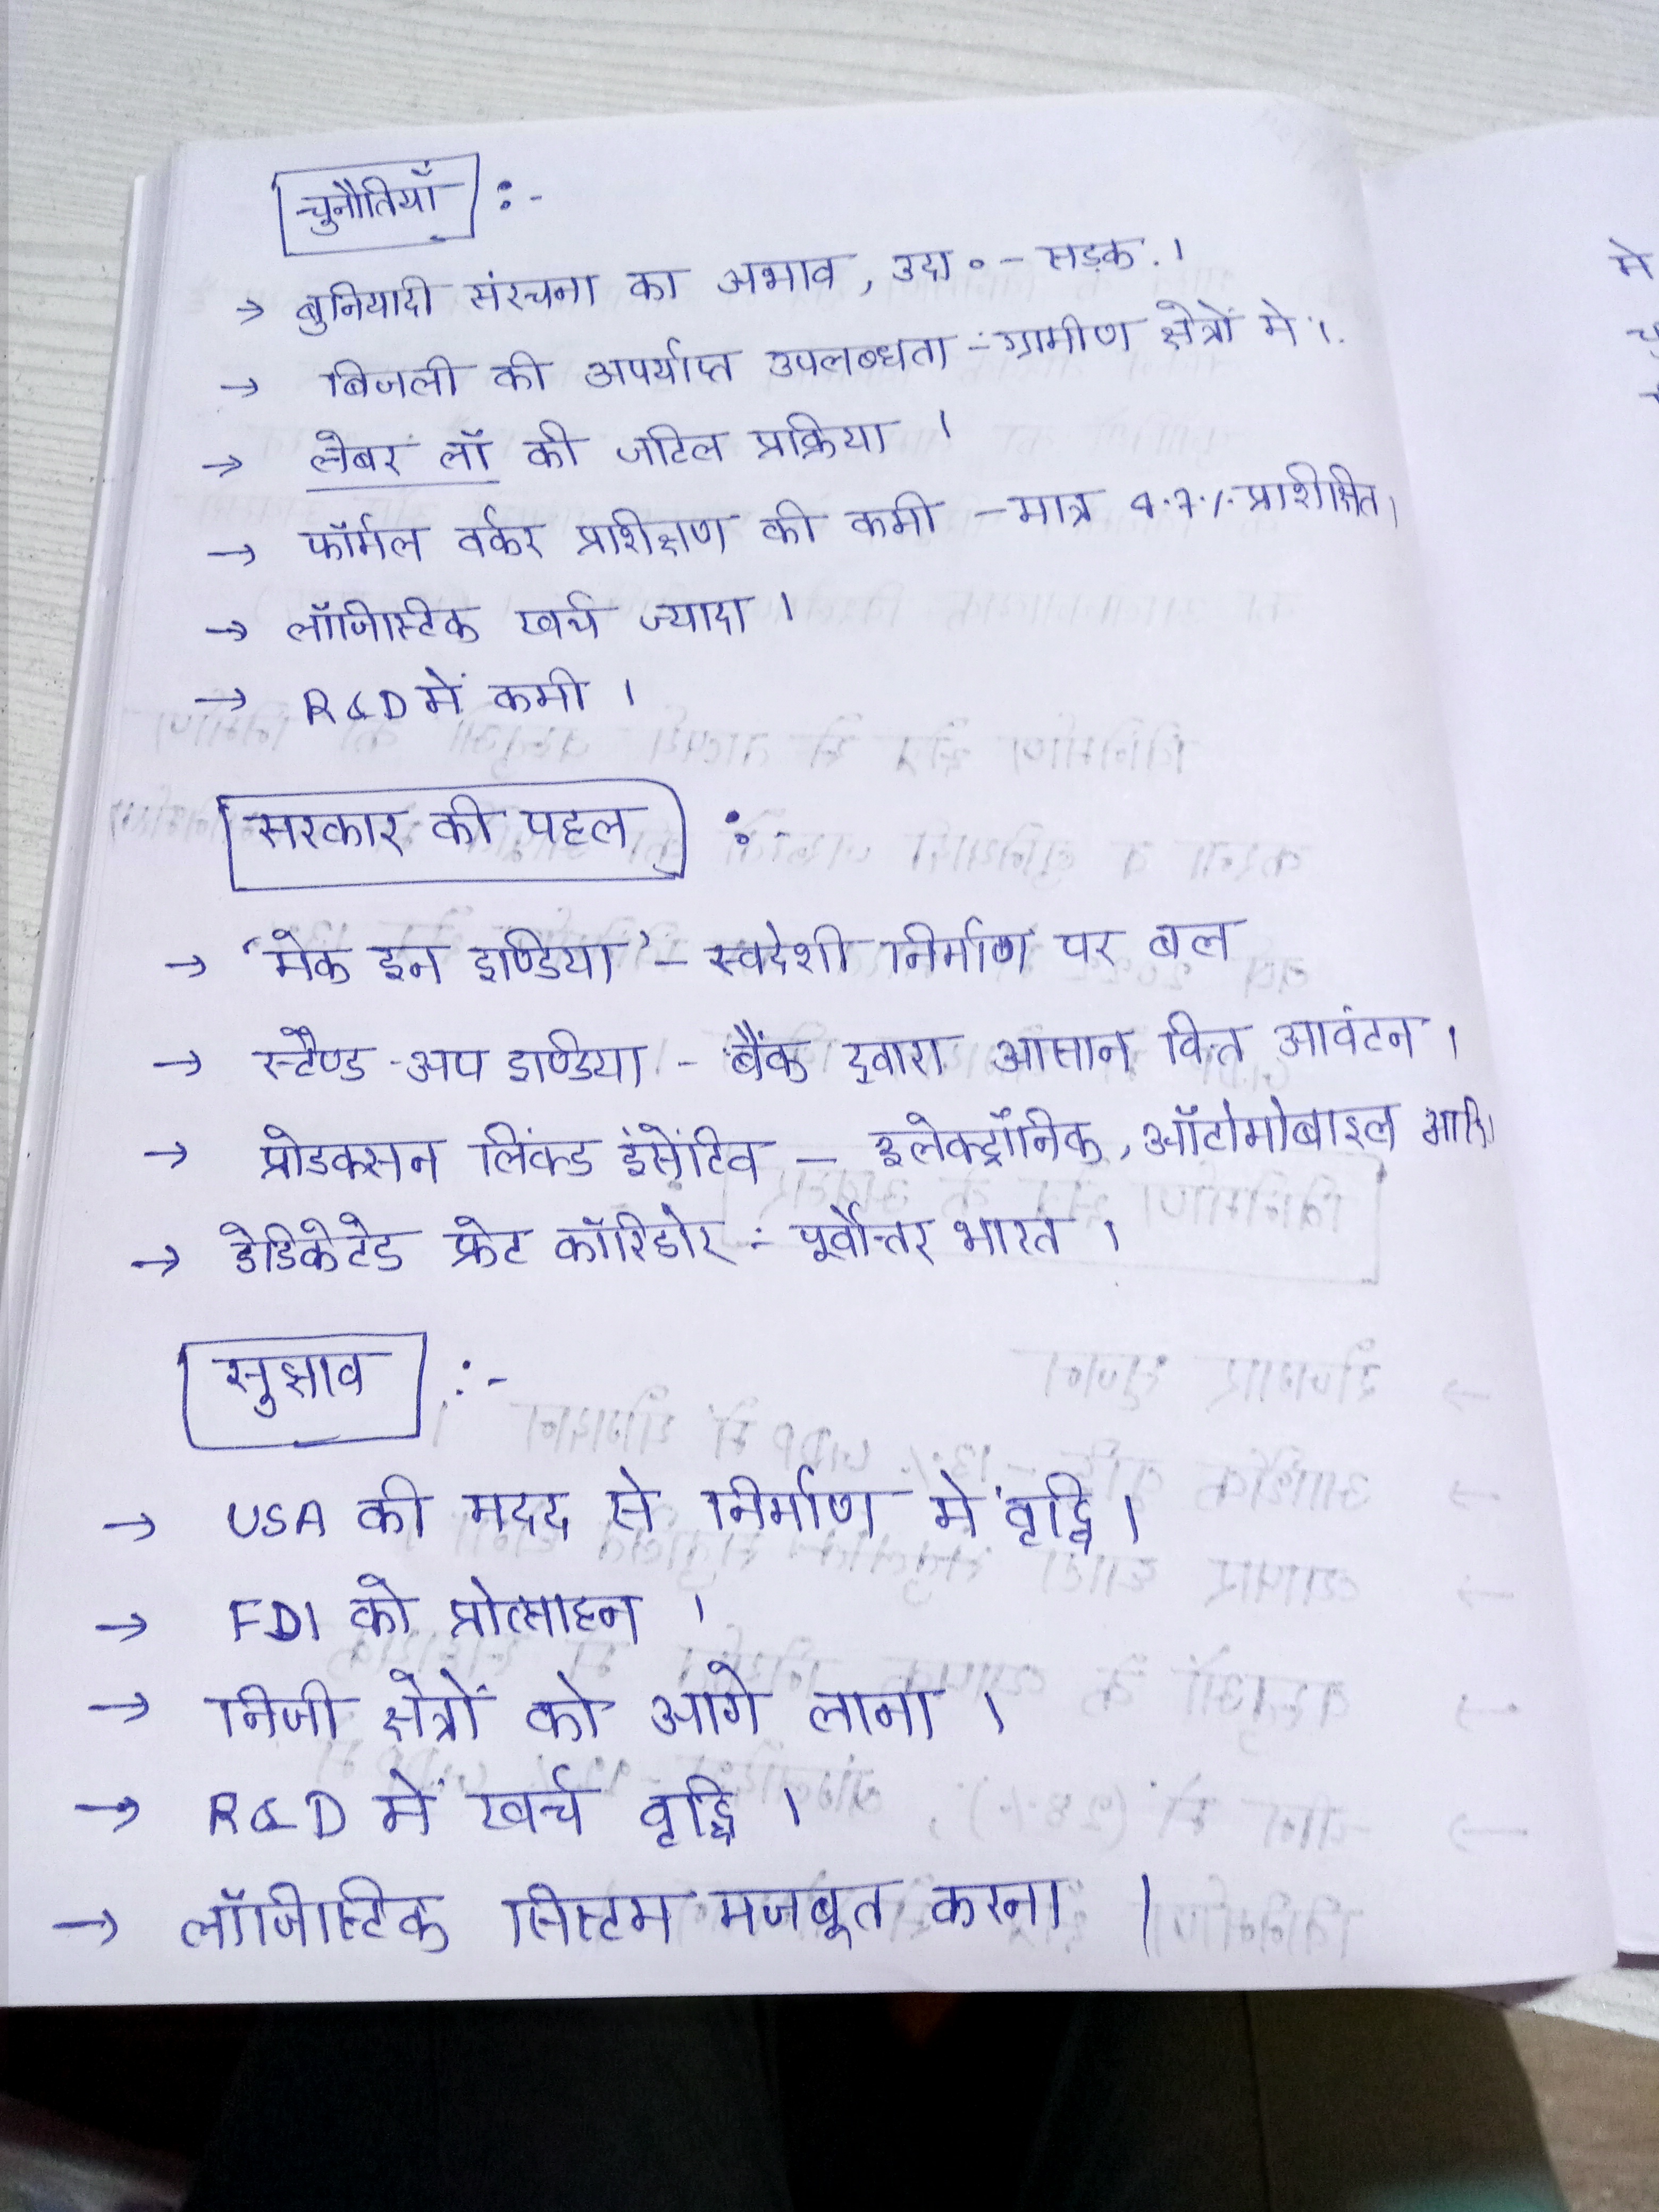 चुनौतियाँ :-
→ बुनियादी संरचना का अभाव, उदा॰ - सड़क ।
→ बिजली की अपर्याप्त उपलब्धता - ग्रामीण क्षेत्रों में ।
→ लेबर लॉ की जटिल प्रक्रिया ।
→ फॉर्मल वर्कर प्राशीक्षण की कमी - मात्र 4.7% प्राशीक्षित ।
→ लॉजिस्टिक खर्च ज्यादा ।
→ R&D में कमी ।
सरकार की पहल :-
→ 'मेक इन इण्डिया' - स्वदेशी निर्माण पर बल
→ स्टैण्ड-अप इण्डिया - बैंक द्वारा आसान वित्त आवंटन ।
→ प्रोडक्सन लिंक्ड इंसेंटिव - इलेक्ट्रॉनिक, ऑटोमोबाइल आदि।
→ डेडिकेटेड फ्रेट कॉरिडोर :- पूर्वोत्तर भारत ।
सुझाव :-
→ USA की मदद से निर्माण में वृद्धि ।
→ FDI को प्रोत्साहन ।
→ निजी क्षेत्रों को आगे लाना ।
→ R&D में खर्च वृद्धि ।
→ लॉजिस्टिक सिस्टम मजबूत करना ।
मे